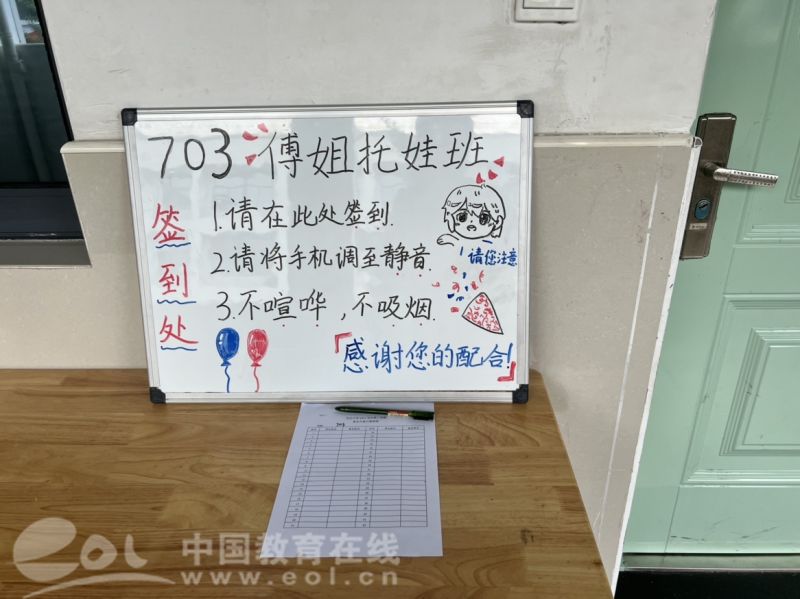 703 傅姐托娃班
签到处
1.请在此处签到.
2.请将手机调至静音.
3.不喧哗,不吸烟.
请您注意
「感谢您的配合!」
703
中国教育在线
www.eol.cn